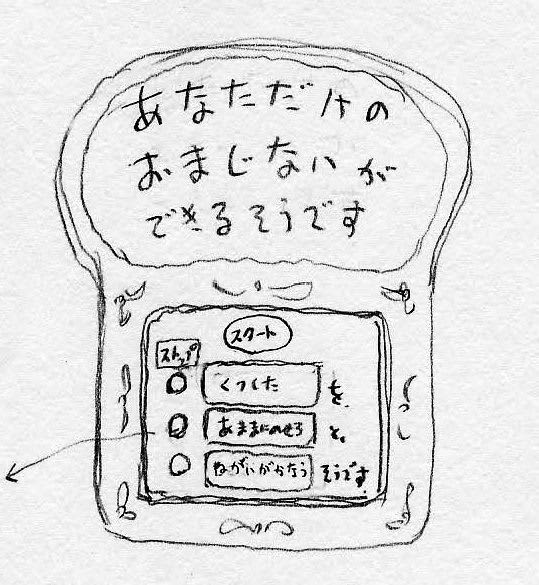 あなただけの
おまじないが
できるそうです
スタート
ストップ
くつしたを、
あたまにのせると、
ねがいがかなうそうです